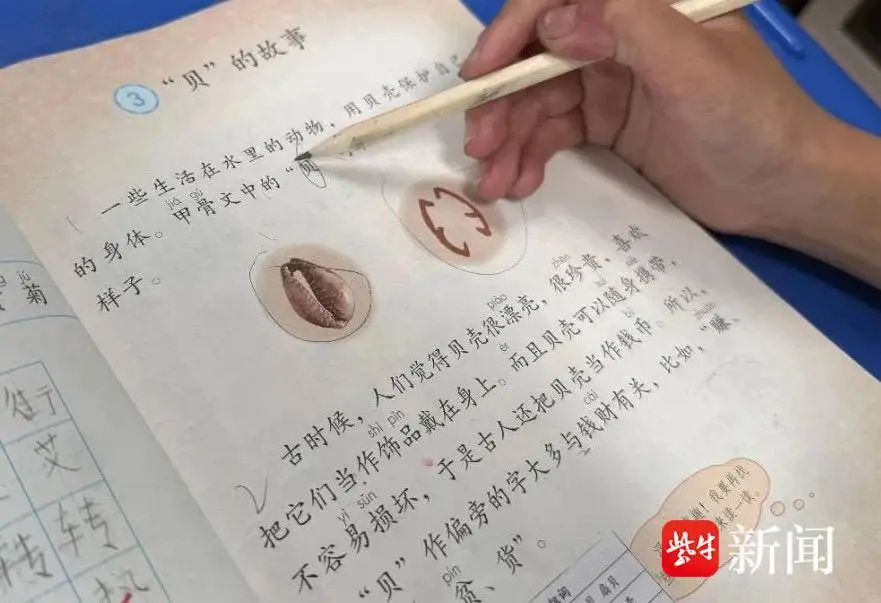 3 “贝”的故事
一些生活在水里的动物，用贝壳保护自己
jiǎ gǔ
的身体。甲骨文中的“贝
样子。
piāo zhēn
古时候，人们觉得贝壳很漂亮，很珍贵，喜欢
shì pǐn
把它们当作饰品戴在身上。而且贝壳可以随身携带，
yì sǔn bì
不容易损坏，于是古人还把贝壳当作钱币。所以，
cái zhuàn
“贝”作偏旁的字大多与钱财有关，比如，“赚、
pín
贫、货”。
菊
艾
转 转
趣！我要再找
来读一读。
紫牛 新闻